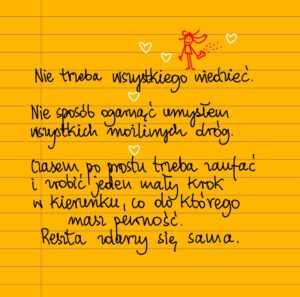 Nie trzeba wszystkiego wiedzieć.
Nie sposób ogarnąć umysłem
wszystkich możliwych dróg.
Czasem po prostu trzeba zaufać
i zrobić jeden mały krok
w kierunku, co do którego
masz pewność.
Reszta zdarzy się sama.